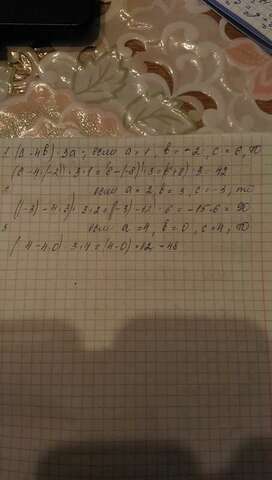 1 (8-4в)·3а ; если а = 1 , в = -2 , с = 6, то
(6-4·(-2))·3·1 = (6-(-8))·3 = (6+8)·3 = 42
2 если а = 2, в = 3, с = -3; то
((-3)-4·3)·3·2 = ((-3)-12)·6 = -15·6 = 90
3 если а = 4, в = 0, с = 4, то
(4-4·0)·3·4 = (4-0)·12 = 48